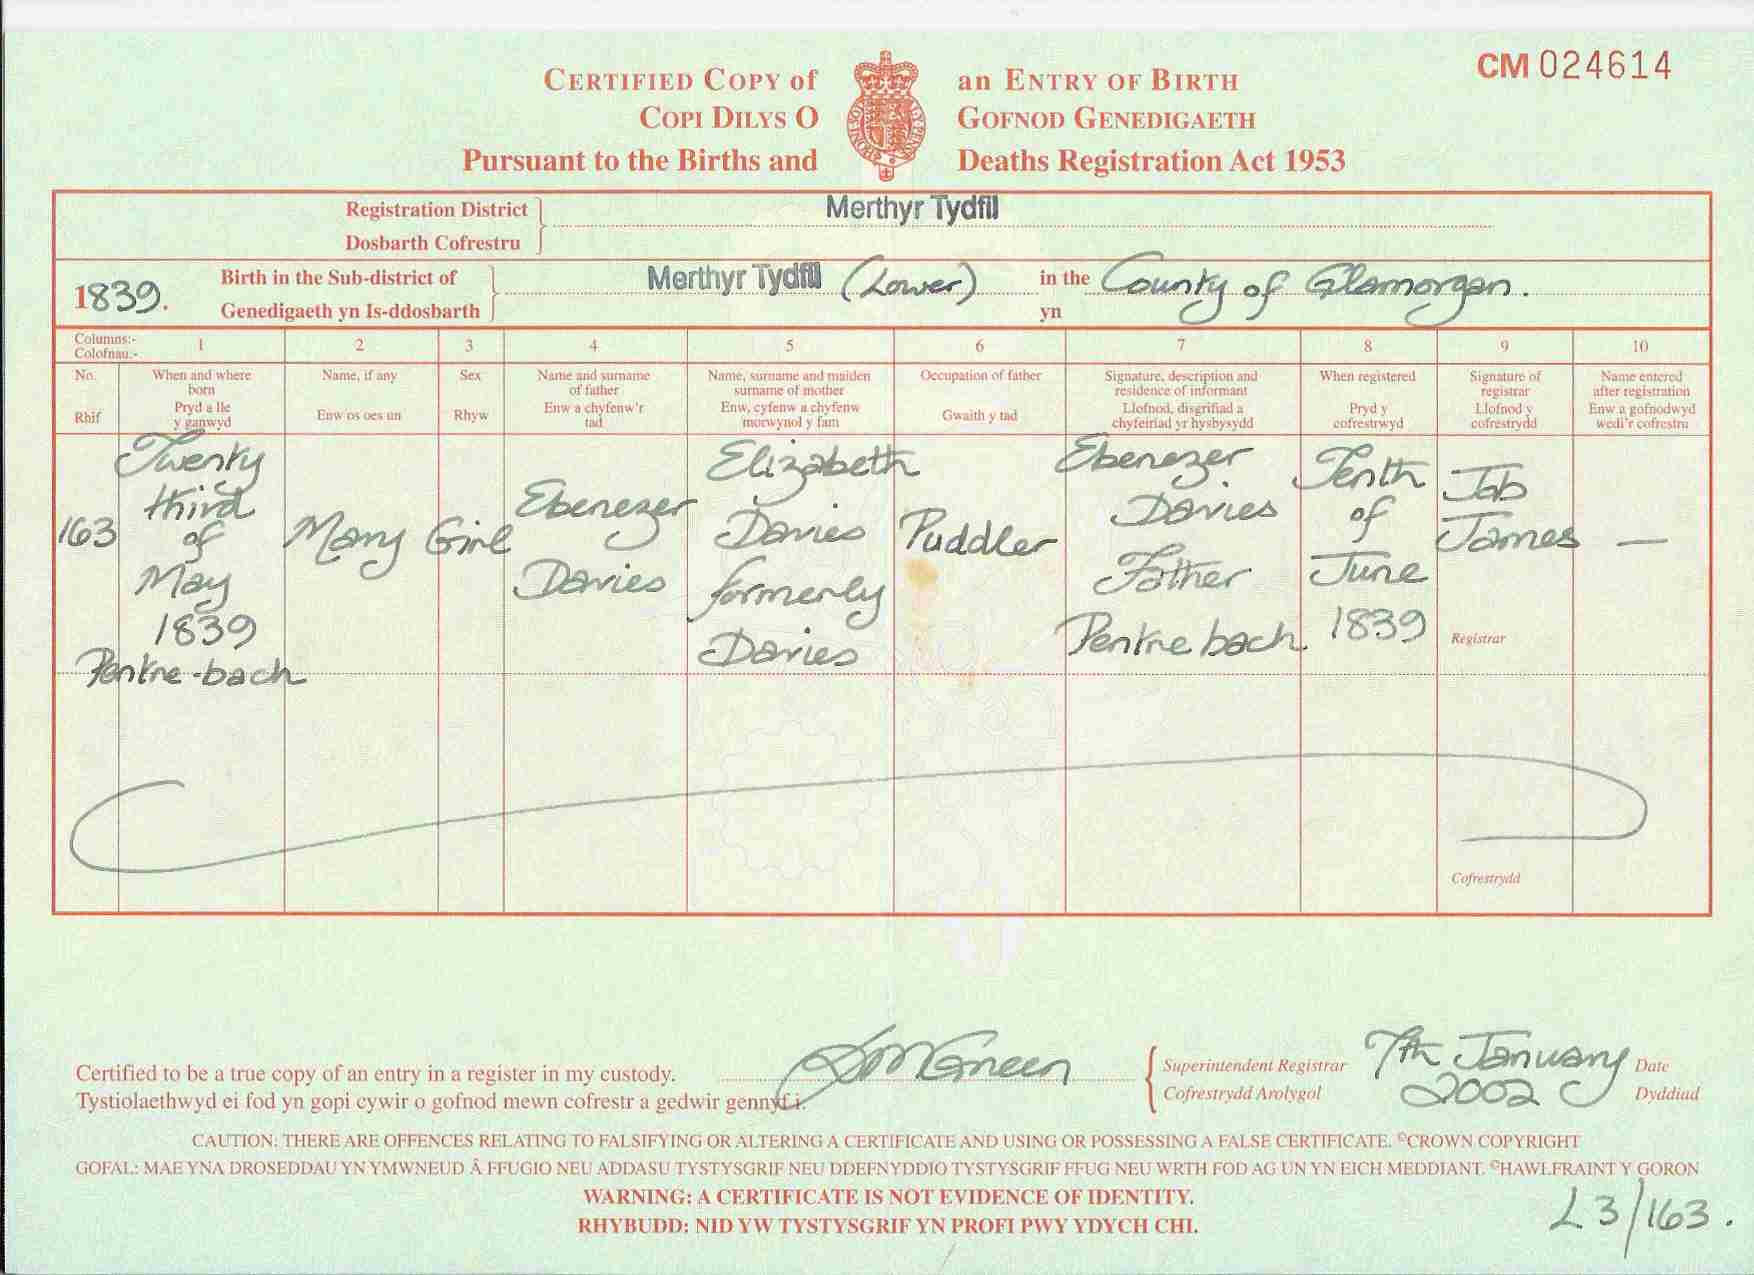 CM 024614
CERTIFIED COPY of an ENTRY OF BIRTH
COPI DILYS O GOFNOD GENEDIGAETH
Pursuant to the Births and Deaths Registration Act 1953
Registration District Merthyr Tydfil
Dosbarth Cofrestru
1839. Birth in the Sub-district of Merthyr Tydfil (Lower) in the County of Glamorgan.
Genedigaeth yn Is-ddosbarth yn
Columns:- 1 2 3 4 5 6 7 8 9 10
Colofnau:-
No. When and where born Name, if any Sex Name and surname of father Name, surname and maiden surname of mother Occupation of father Signature, description and residence of informant When registered Signature of registrar Name entered after registration
Rhif Pryd a lle y ganwyd Enw os oes un Rhyw Enw a chyfenw'r tad Enw, cyfenw a chyfenw morwynol y fam Gwaith y tad Llofnod, disgrifiad a chyfeiriad yr hysbysydd Pryd y cofrestrwyd Llofnod y cofrestrydd Enw a gofnodwyd wedi'r cofrestru
163
Twenty
third
of
May
1839
Pentre-bach
Mary
Girl
Ebenezer
Davies
Elizabeth
Davies
formerly
Davies
Puddler
Ebenezer
Davies
Father
Pentre bach.
Tenth
of
June
1839
Job
James
Registrar
—
Cofrestrydd
Certified to be a true copy of an entry in a register in my custody. Superintendent Registrar 7th January Date
Tystiolaethwyd ei fod yn gopi cywir o gofnod mewn cofrestr a gedwir gennyf i. Cofrestrydd Arolygol 2002 Dyddiad
CAUTION: THERE ARE OFFENCES RELATING TO FALSIFYING OR ALTERING A CERTIFICATE AND USING OR POSSESSING A FALSE CERTIFICATE. ©CROWN COPYRIGHT
GOFAL: MAE YNA DROSEDDAU YN YMWNEUD Â FFUGIO NEU ADDASU TYSTYSGRIF NEU DDEFNYDDIO TYSTYSGRIF FFUG NEU WRTH FOD AG UN YN EICH MEDDIANT. ©HAWLFRAINT Y GORON
WARNING: A CERTIFICATE IS NOT EVIDENCE OF IDENTITY.
RHYBUDD: NID YW TYSTYSGRIF YN PROFI PWY YDYCH CHI.
L3/163.